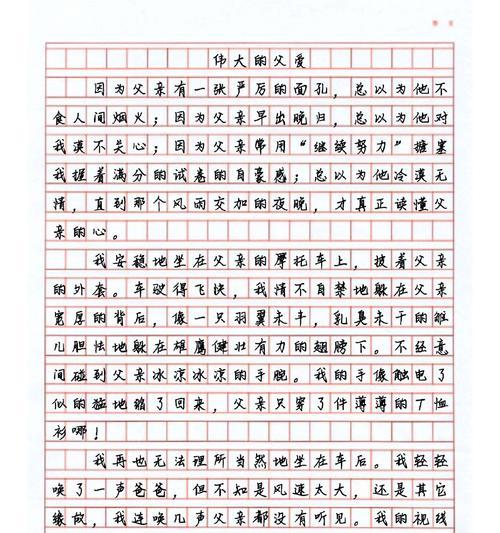 伟大的父爱
因为父亲有一张严厉的面孔，总以为他不
食人间烟火；因为父亲早出晚归，总以为他对
我漠不关心；因为父亲常用“继续努力”搪塞
我握着满分的试卷的自豪感；总以为他冷漠无
情，直到那个风雨交加的夜晚，才真正读懂父
亲的心。
我安稳地坐在父亲的摩托车上，披着父亲
的外套。车驶得飞快，我情不自禁地躲在父亲
宽厚的背后，像一只羽翼未丰，乳臭未干的雏
儿胆怯地躲在雄鹰健壮有力的翅膀下。不经意
间碰到父亲冰凉冰凉的手腕。我的手像触电了
似的猛地缩了回来，父亲只穿了件薄薄的T恤
衫哪！
我再也无法理所当然地坐在车后。我轻轻
唤了一声爸爸，但不知是风速太大，还是其它
缘故，我连唤几声父亲都没有听见。我的视线